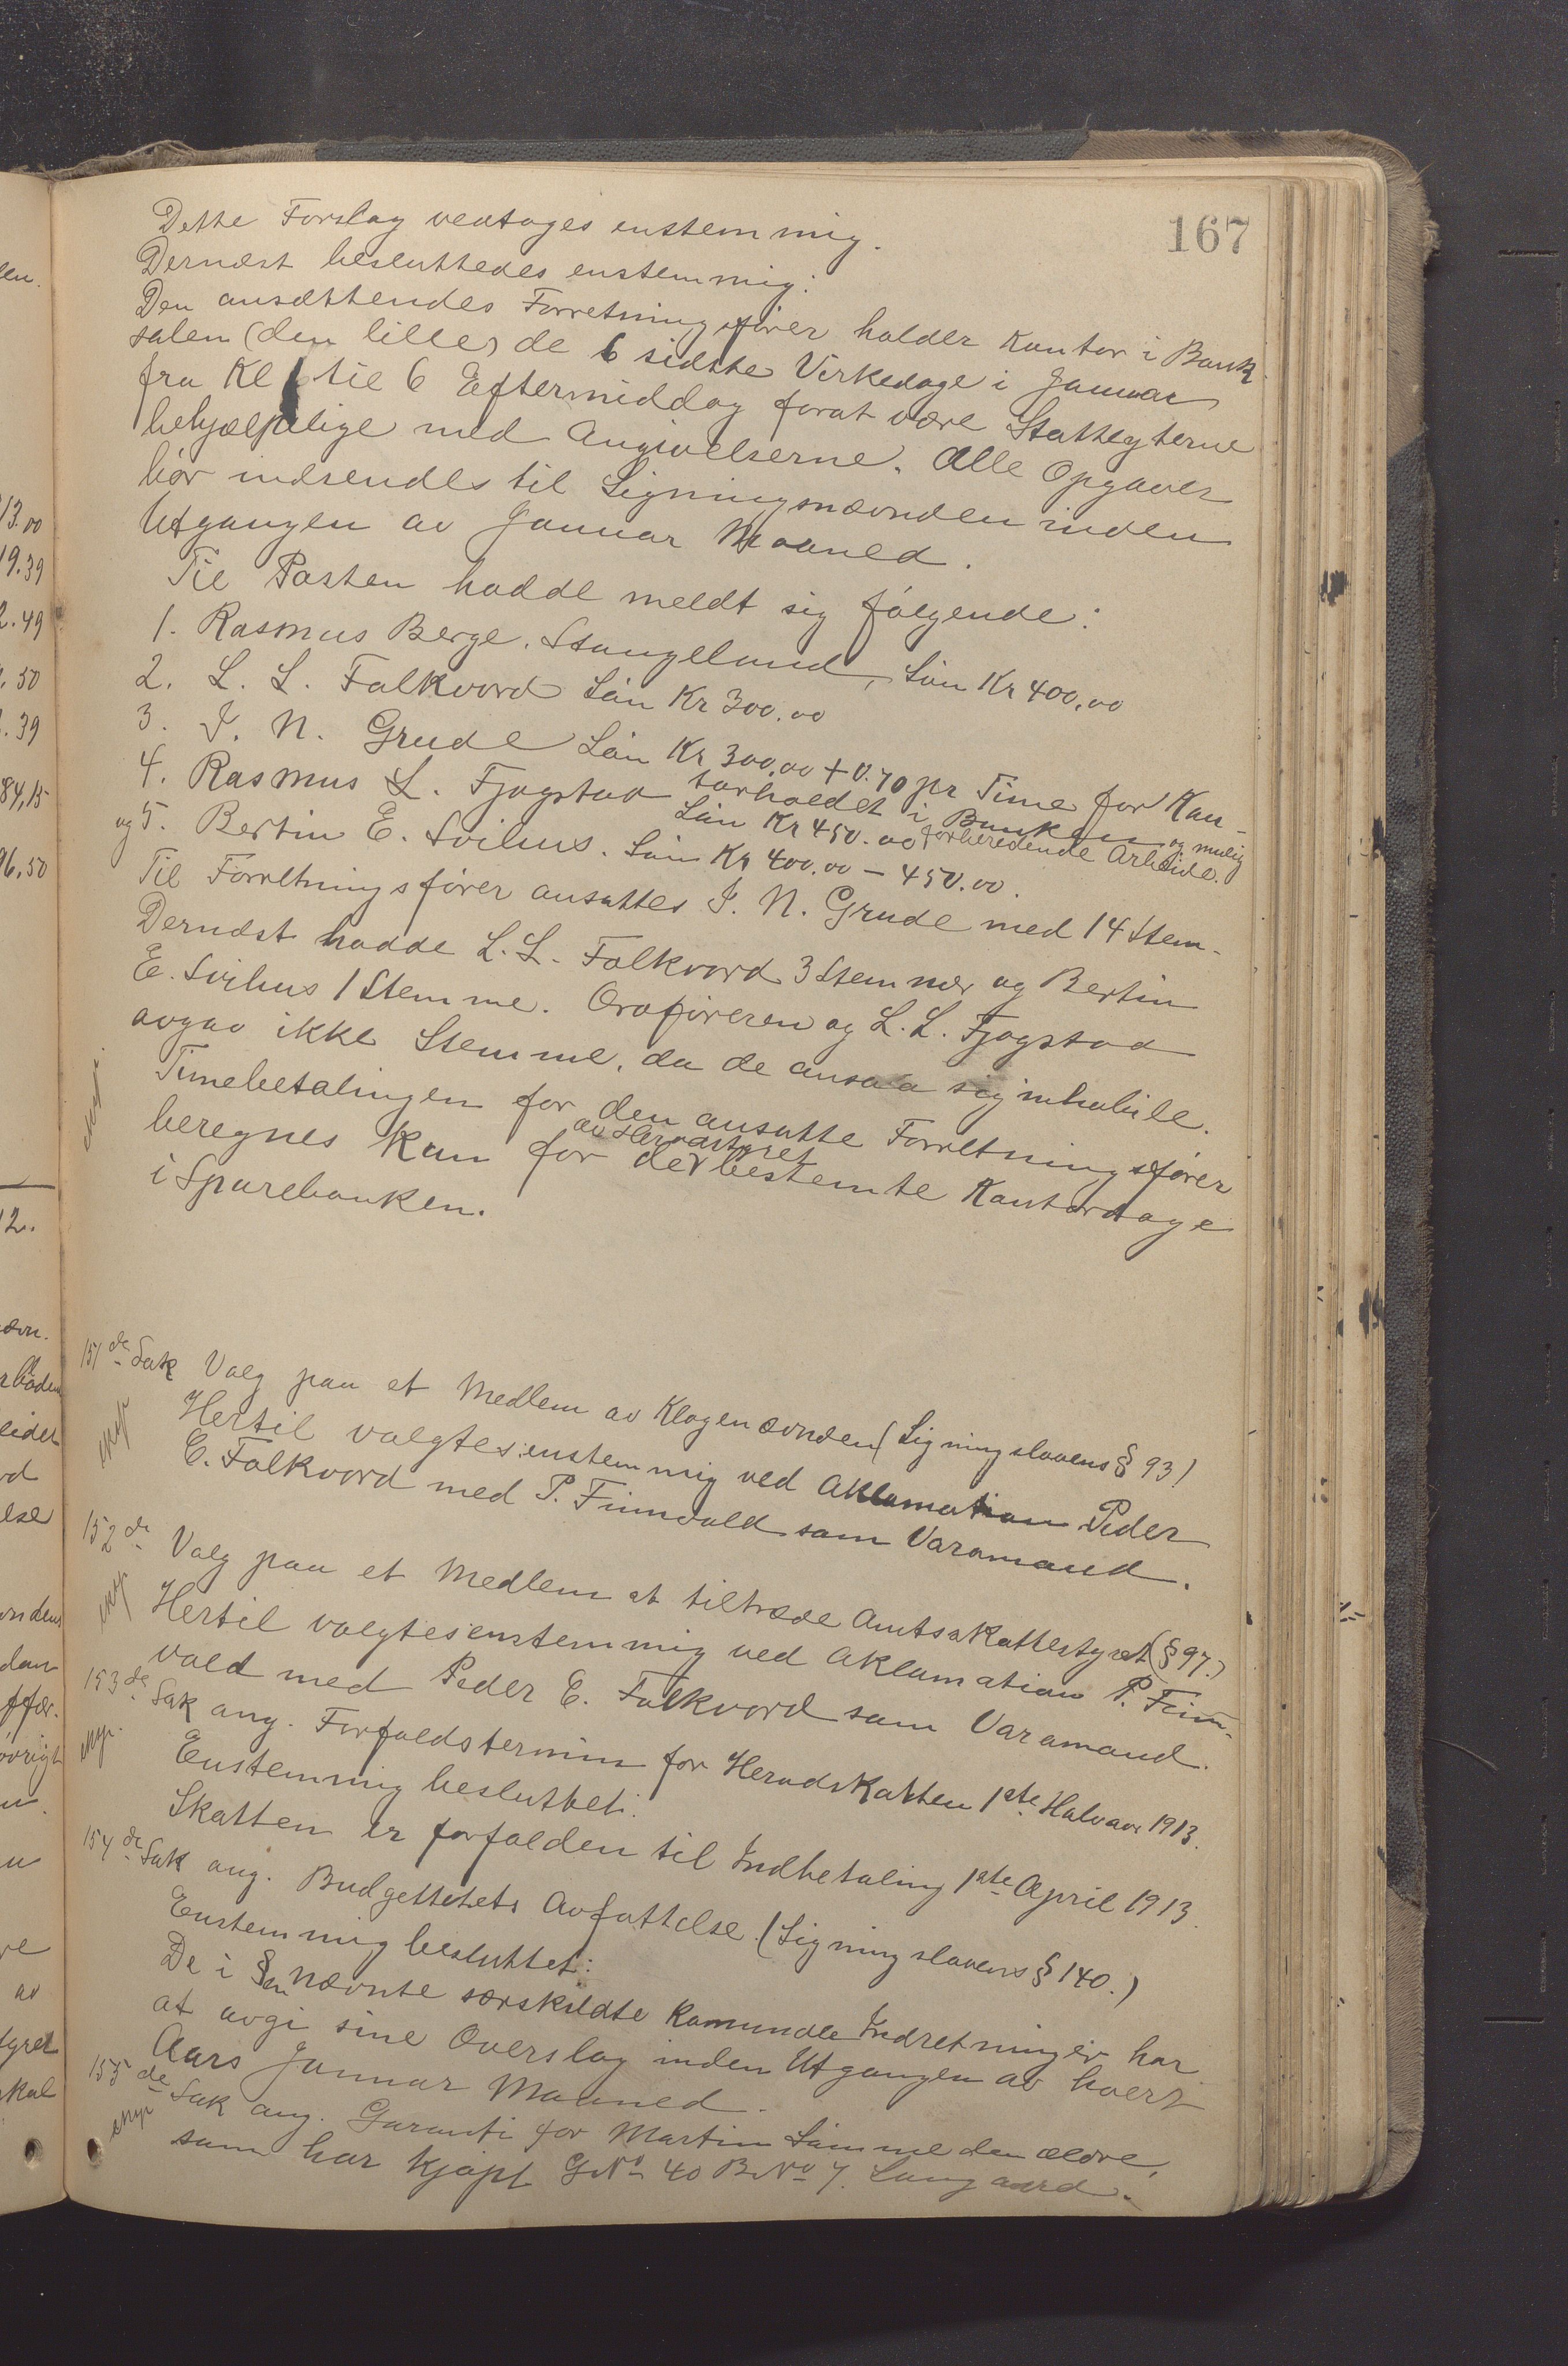 167
Dette Forslag vedtoges enstemmig.
Dernæst besluttedes enstemmig:
Den ansættendes Forretningsfører holder Kontor i Bank-
salen (den lille) de 6 sidste Virkedage i Januar
fra Kl 1 til 6 Eftermiddag forat være Skatteyterne
behjælpelige med Angivelserne. Alle Opgaver
bør indsendes til Ligningsnævnden inden
Utgangen av Januar Maaned.
Til Posten hadde meldt sig følgende:
1. Rasmus Berge, Stangeland, Løn Kr 400,00
2. L. L. Folkvord Løn Kr 300.00
3. I. N. Grude Løn Kr 300,00 + 0.70 pr Time for Kon-
torholdet i Banken og mulig
forberedende Arbeide.
4. Rasmus L. Fjogstad Løn Kr 450.00
og 5. Bertin E. Svihus. Løn Kr 400.00 – 450.00.
Til Forretningsfører ansattes I. N. Grude med 14 Stem-
Dernæst hadde L. L. Folkvord 3 Stemmer og Bertin
E. Svihus 1 Stemme. Ordføreren og L. L. Fjogstad
avgav ikke Stemme, da de ansaa sig inhabile.
Timebetalingen for den ansatte Forretningsfører
beregnes kun for de av Herredstyret bestemte Kontordage
i Sparebanken.
151de Sak Valg paa et Medlem av Klagenævnden (Ligningslovens § 93)
Hertil valgtes enstemmig ved Aklamation Peder
E. Folkvord med P. Finnvold som Varamand.
152de Valg paa et Medlem at tiltræde Amtsskattestyret (§ 97.)
Hertil valgtes enstemmig ved Aklamation P. Finn-
vold med Peder E. Folkvord som Varamand.
153de Sak ang. Forfaldstermin for Heradskatten 1ste Halvaar 1913.
Enstemmig besluttet:
Skatten er forfalden til Indbetaling 1ste April 1913.
154de Sak ang. Budgettetets Avfattelse. (Ligningslovens § 140.)
Enstemmig besluttet:
De i §en nævnte særskildte Komunale Indretninger har
at avgi sine Overslag inden Utgangen av hvert
Aars Januar Maaned.
155de Sak ang. Garanti for Martin Lamme den ældre,
som har kjøpt GNo 40 BNo 7. Lungaard.